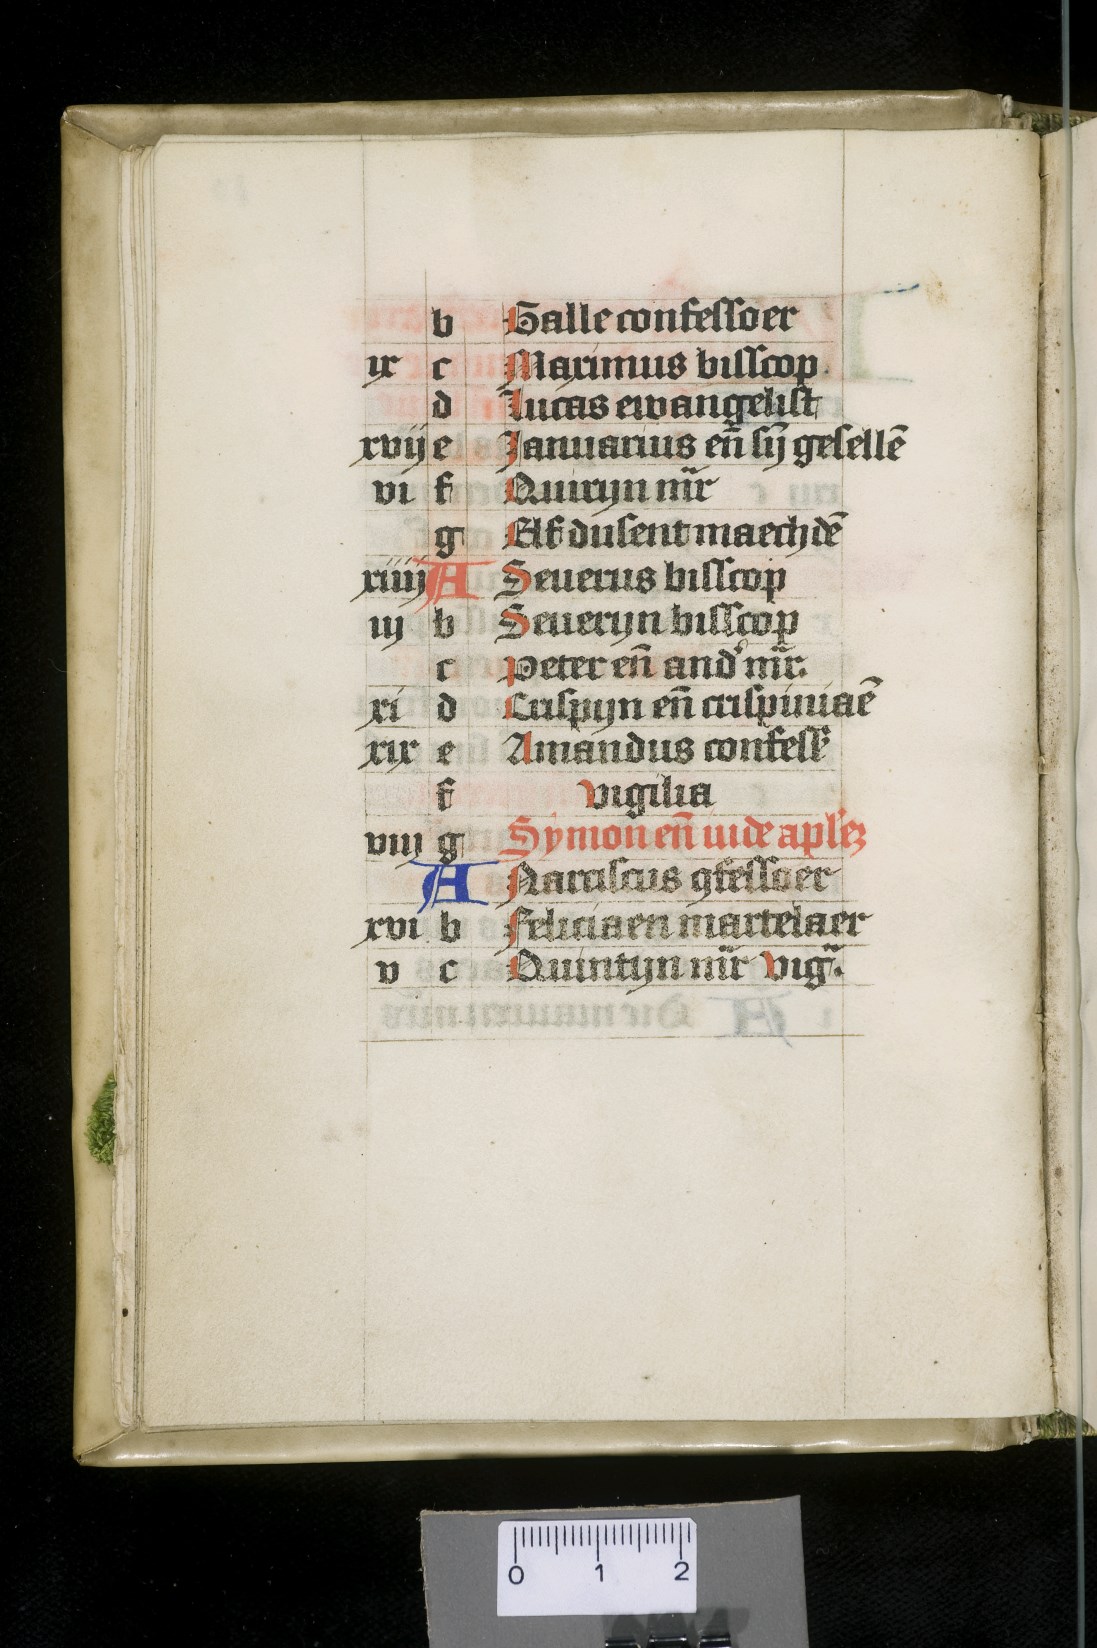 b Galle confessoer
ix c Maximus bisscop.
d Lucas ewangelist
xvij e Januarius eñ sij gesellē
vi f Quirijn mr̄
g Elf dusent maechdē
xiiij A Seuerus bisscop
iij b Seuerijn bisscop
c Peter eñ and' mr̄.
xi d Crispijn eñ crispiniaē
xix e Amandus confess'
f vigilia
viij g Symon eñ iude apl'ez
A Narciscus ꝯfessoer
xvi b Feliciaen martelaer
v c Quintijn mr̄ vig̃.
0 1 2